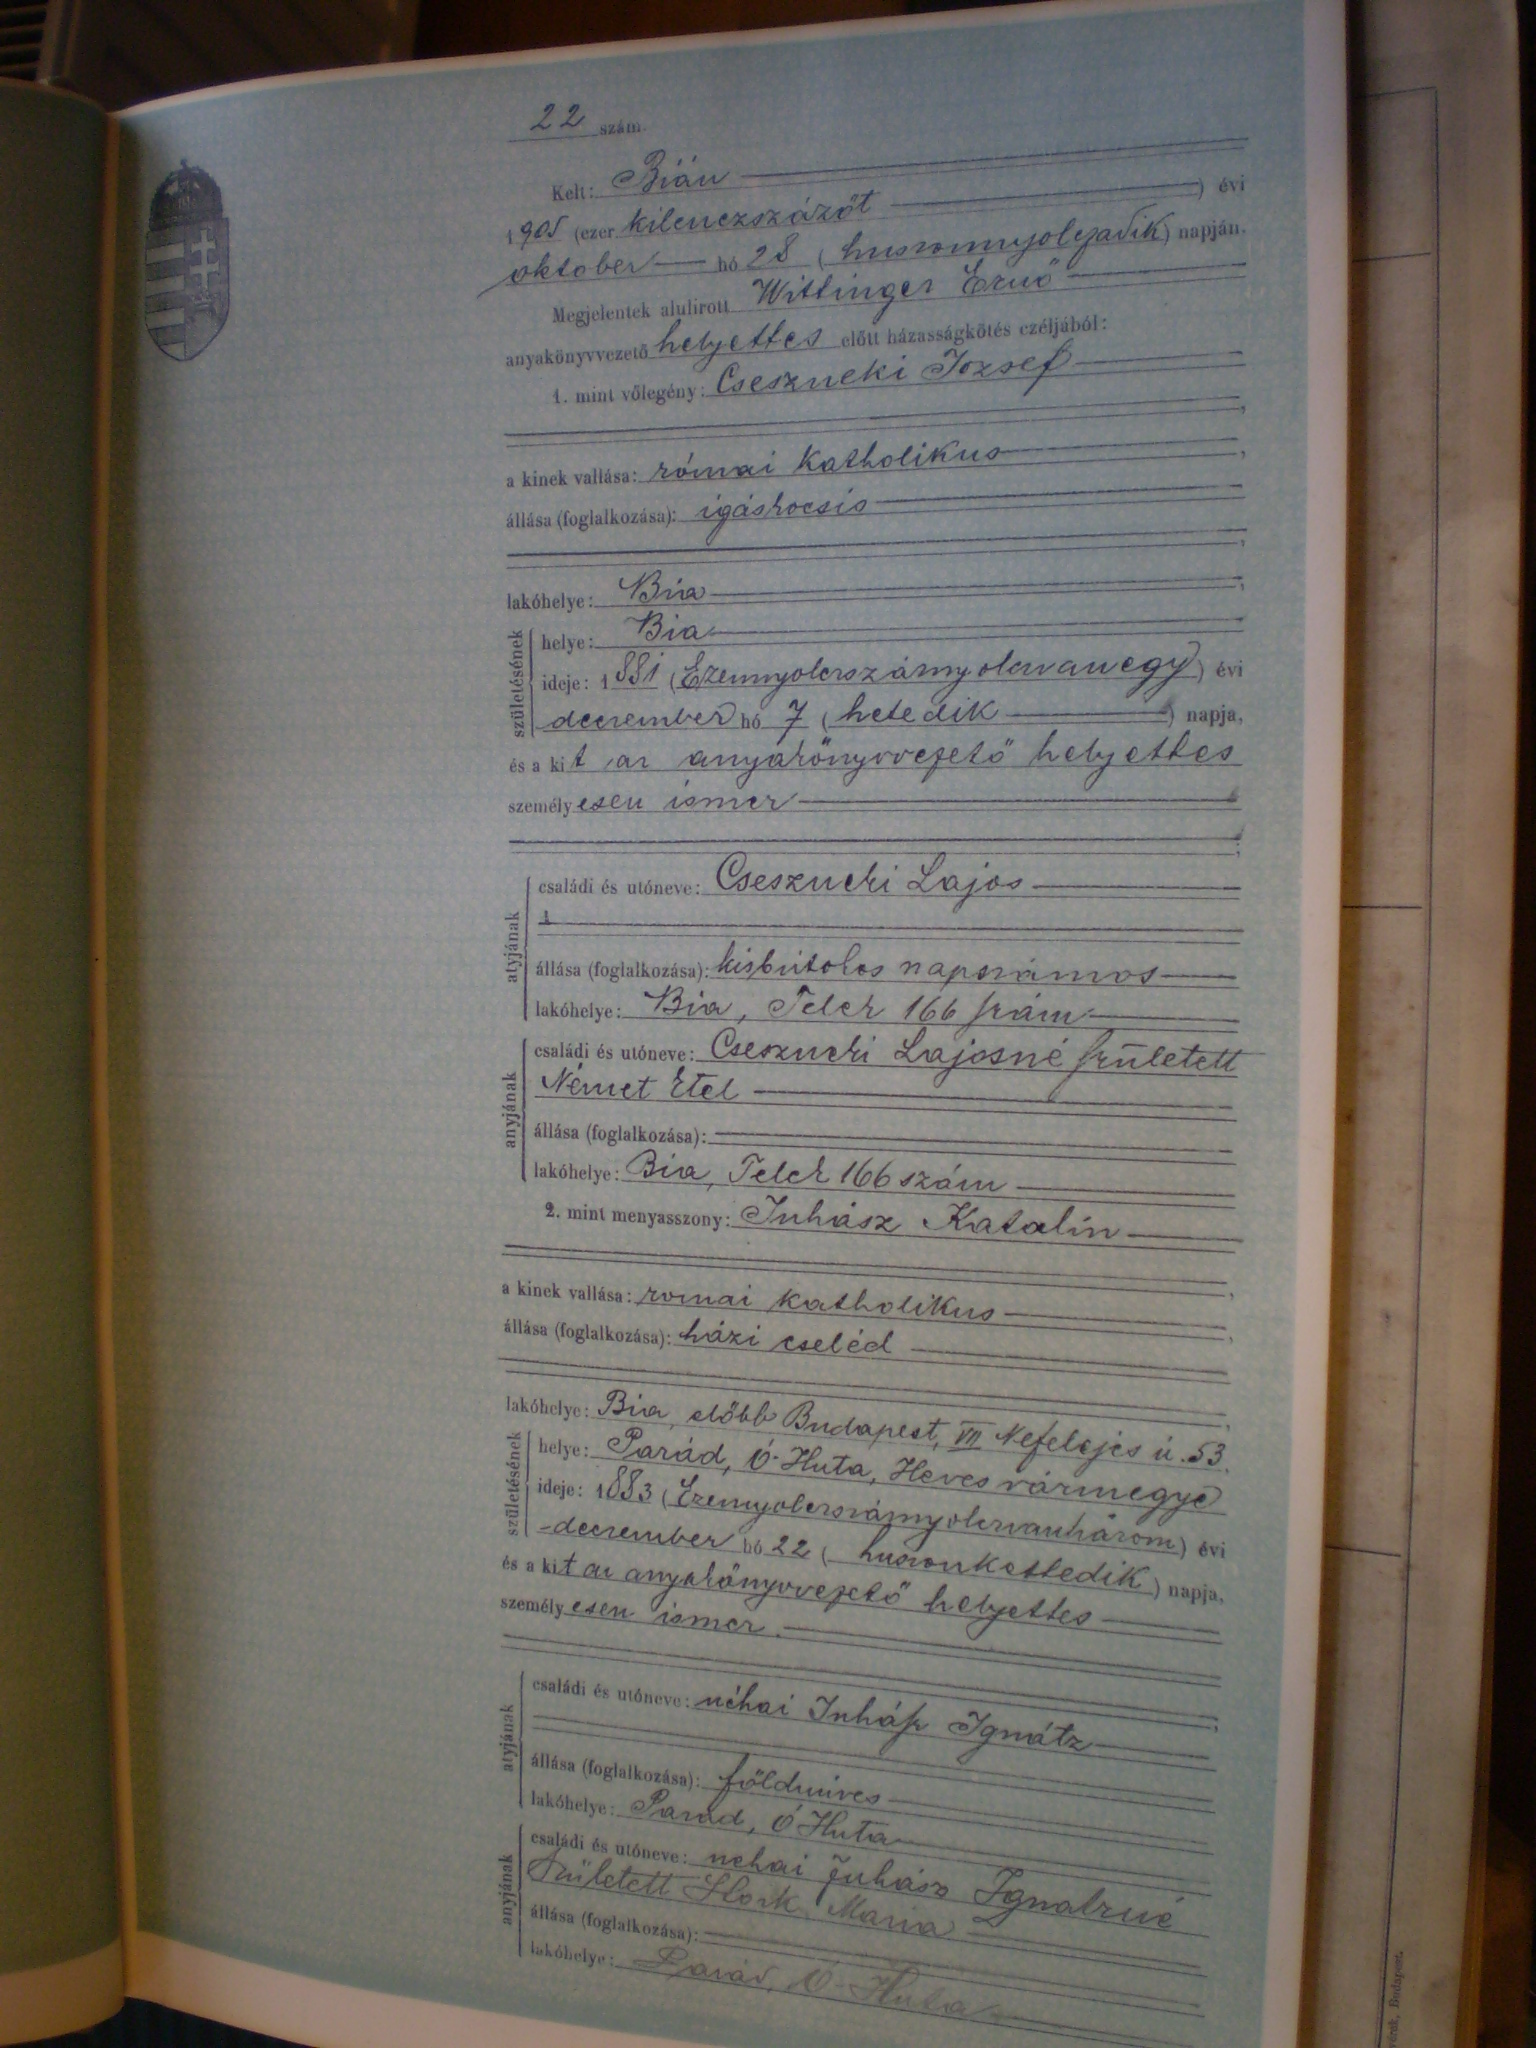 22 szám.
Kelt: Bián
1905 (ezer kilenczszázöt) évi
oktober hó 28 (huszonnyolczadik) napján.
Megjelentek alulírott Wittinger Ernő
anyakönyvvezető helyettes előtt házasságkötés czéljából:
1. mint vőlegény: Cseszneki Jozsef
a kinek vallása: római katholikus
állása (foglalkozása): igáskocsis
lakóhelye: Bia
születésének
helye: Bia
ideje: 1881 (Ezernyolczszáznyolczvanegy) évi
deczember hó 7 (hetedik) napja,
és a kit az anyakönyvvezető helyettes
személyesen ismer
atyjának
családi és utóneve: Cseszneki Lajos
állása (foglalkozása): kisbirtokos napszámos
lakóhelye: Bia, Telek 166 szám
anyjának
családi és utóneve: Cseszneki Lajosné született
Német Etel
állása (foglalkozása):
lakóhelye: Bia, Telek 166 szám
2. mint menyasszony: Juhász Katalin
a kinek vallása: romai katholikus
állása (foglalkozása): házi cseléd
lakóhelye: Bia, előbb Budapest, VII Nefelejcs ú. 53.
születésének
helye: Parád, Ó-Huta, Heves vármegye
ideje: 1883 (Ezernyolczszáznyolczvanhárom) évi
deczember hó 22 (huszonkettedik) napja,
és a kit az anyakönyvvezető helyettes
személyesen ismer.
atyjának
családi és utóneve: néhai Juhász Ignátz
állása (foglalkozása): földmives
lakóhelye: Parád, Ó Huta
anyjának
családi és utóneve: nehai Juhász Ignatzné
született Mária
állása (foglalkozása):
lakóhelye: Parád, Ó-Huta
Budapest.